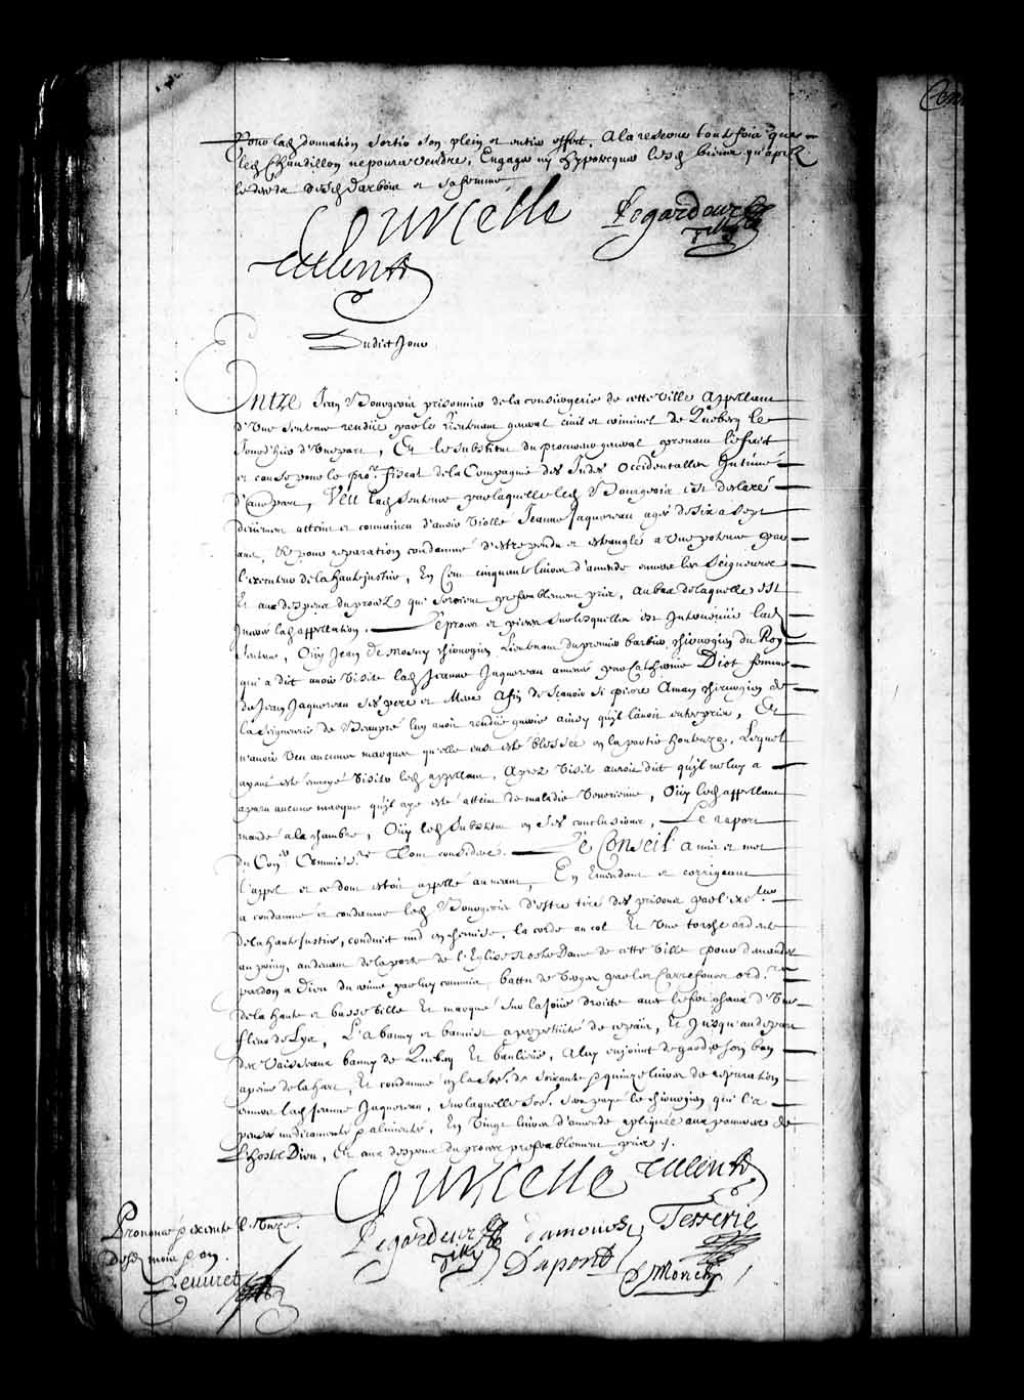 Pour lad donnation sortir son plein et entier effect, A la reserve toutefois que
led Chaudillon ne poura vendre, Engager ny hypotecquer lesd biens qu'apres
le deceds dud Darbois et sa femme
Courcelle Legardeur
Tilly
Talent
Dudict Jour
Entre Jean Bourgeois prisonnier de la conciergerie de cette ville Appellant
d'Une sentence rendüe par le Lieutenant general civil et criminel de Quebecq le
Jourd'hier d'Une part, Et le substitut du procureur general prenant le faict
et cause pour le pror. fiscal de la Compagnie des Indes Occidentalles Intimé
d'autre part, Veu lad sentence par laquelle led Bourgeois est declaré
deüement atteint et convaincu d'avoir violle Jeanne Jaquereau agée de six a sept
ans, Et pour reparation condamné d'estre pendu et estranglé a une potence par
l'executeur de la haute justice, En Cent cinquante livres d'amende envers les Seigneurs
Et aux despens du procez qui seroient prealablement pris, au bas de laquelle est
Jnseré lad appellation. Le proces et pieces sur lesquelles est Jntervenüe lad
sentence, Oüy Jean de mosny chirurgien Lieutenant du premier barbier chirurgien du Roy
qui a dict avoir visité lad Jeanne Jaquereau amenée par Catherine Diot femme
de Jean Jaquereau ses pere et Mere Afin de sçavoir si pierre Aman chirurgien de
la seigneurie de Beaupré luy avoit rendüe guerie ainsy qu'il l'avoit entrepris, Et
n'avoir veu aucunes marques qu'elle eust esté blessée en la partie honteuze, Lequel
ayant esté envoyé visiter led appellant, Apres visite auroit dict qu'il ne luy a
aparu aucune marque qu'il aye esté atteint de maladie venerienne, Oüy led appellant
mandé a la chambre, Oüy led Substitut en ses conclusions, Le raport
du Conr. Commissre. Tout consideré. Le Conseil a mis et met
l'appel et ce dont estoit appellé au neant, En Emendant et corrigeant
a condamné et condamne led Bourgeois d'estre tiré des prisons par l'exeteur
de la haute Justice, conduict nud en chemise, la corde au col Et Une torche ardente
au poing, au devant de la porte de l'Eglise Nostre Dame de cette ville pour demander
pardon a Dieu du crime par luy commis, battu de verges par les Carrefours ordres
de la haute et basse ville Et marqué sur la joüe droite avec le fer chaud d'Une
fleur de Lys, L'a banny et bannist a perpetuité de ce païs, Et Jusqu'au depart
des Vaisseaux banny de Quebecq Et banlieüe, A luy enjoint de garder son ban
a peine de la hart, Et condamné en la some. de soixante & quinze livres de reparation
envers lad Jeanne Jaquereau, sur laquelle some. sera payé le chirurgien qui l'a
pensée medicamentée & alimentée, En Vingt livres d'amende apliquée aux pauvres de
L'hostel Dieu, Et aux despens du proces prealablement pris ./.
Courcelle Talent
Legardeur Damours Tesserie
Tilly Dupont
Morin
Prononcé & executé le
desd mois & an.
Leuvret